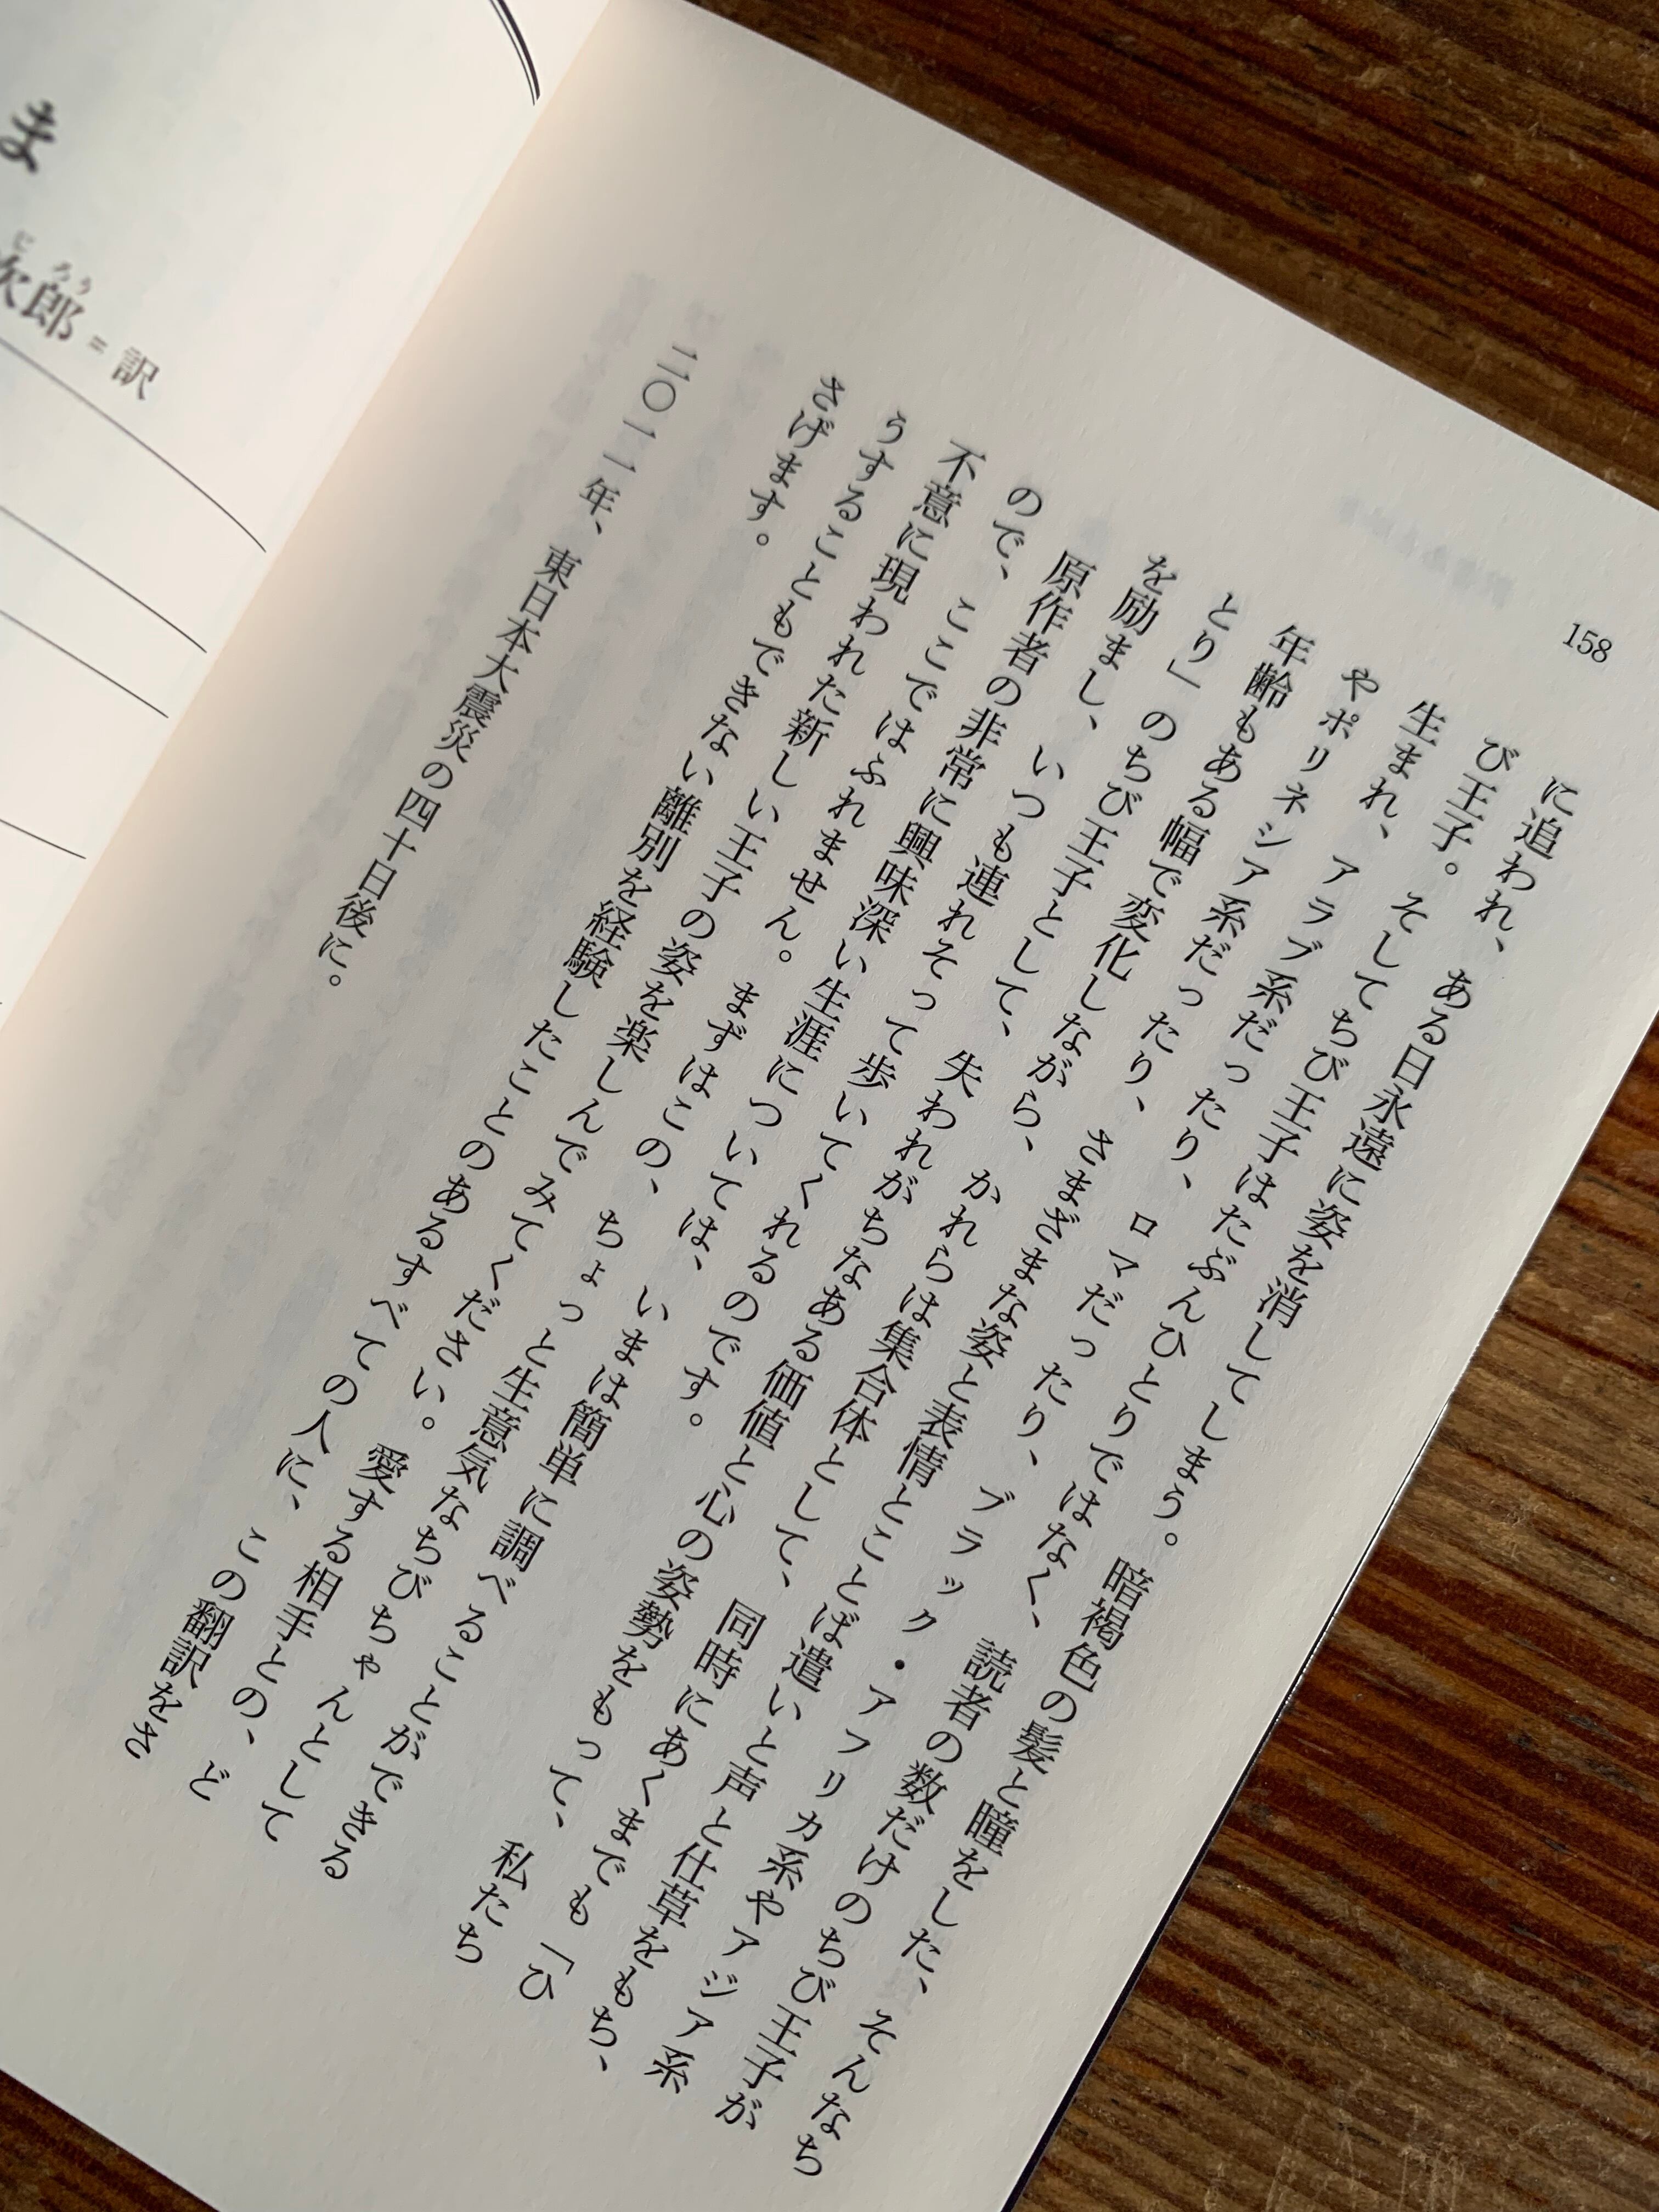 158
に追われ、ある日永遠に姿を消してしまう。暗褐色の髪と瞳をした、そんなち
び王子。そしてちび王子はたぶんひとりではなく、読者の数だけのちび王子が
生まれ、アラブ系だったり、ロマだったり、ブラック・アフリカ系やアジア系
やポリネシア系だったり、さまざまな姿と表情とことば遣いと声と仕草をもち、
年齢もある幅で変化しながら、かれらは集合体として、同時にあくまでも「ひ
とり」のちび王子として、失われがちなある価値と心の姿勢をもって、私たち
を励まし、いつも連れそって歩いてくれるのです。
原作者の非常に興味深い生涯については、いまは簡単に調べることができる
ので、ここではふれません。まずはこの、ちょっと生意気なちびちゃんとして
不意に現われた新しい王子の姿を楽しんでみてください。愛する相手との、ど
うすることもできない離別を経験したことのあるすべての人に、この翻訳をさ
さげます。
二〇一一年、東日本大震災の四十日後に。
ま
次郎=訳